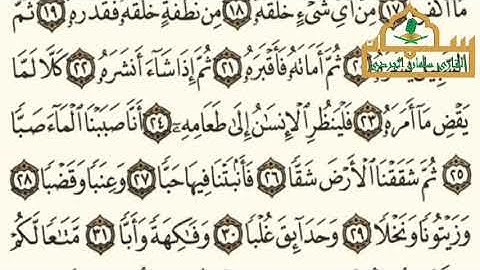 مَآ أَكْفَرَهُۥ ١٧ مِنْ أَىِّ شَىْءٍ خَلَقَهُۥ ١٨ مِن نُّطْفَةٍ خَلَقَهُۥ فَقَدَّرَهُۥ ١٩ ثُمَّ
ثُمَّ أَمَاتَهُۥ فَأَقْبَرَهُۥ ٢١ ثُمَّ إِذَا شَآءَ أَنشَرَهُۥ ٢٢ كَلَّا لَمَّا
يَقْضِ مَآ أَمَرَهُۥ ٢٣ فَلْيَنظُرِ ٱلْإِنسَٰنُ إِلَىٰ طَعَامِهِۦٓ ٢٤ أَنَّا صَبَبْنَا ٱلْمَآءَ صَبًّا
٢٥ ثُمَّ شَقَقْنَا ٱلْأَرْضَ شَقًّا ٢٦ فَأَنۢبَتْنَا فِيهَا حَبًّا ٢٧ وَعِنَبًا وَقَضْبًا ٢٨
وَزَيْتُونًا وَنَخْلًا ٢٩ وَحَدَآئِقَ غُلْبًا ٣٠ وَفَٰكِهَةً وَأَبًّا ٣١ مَّتَٰعًا لَّكُمْ